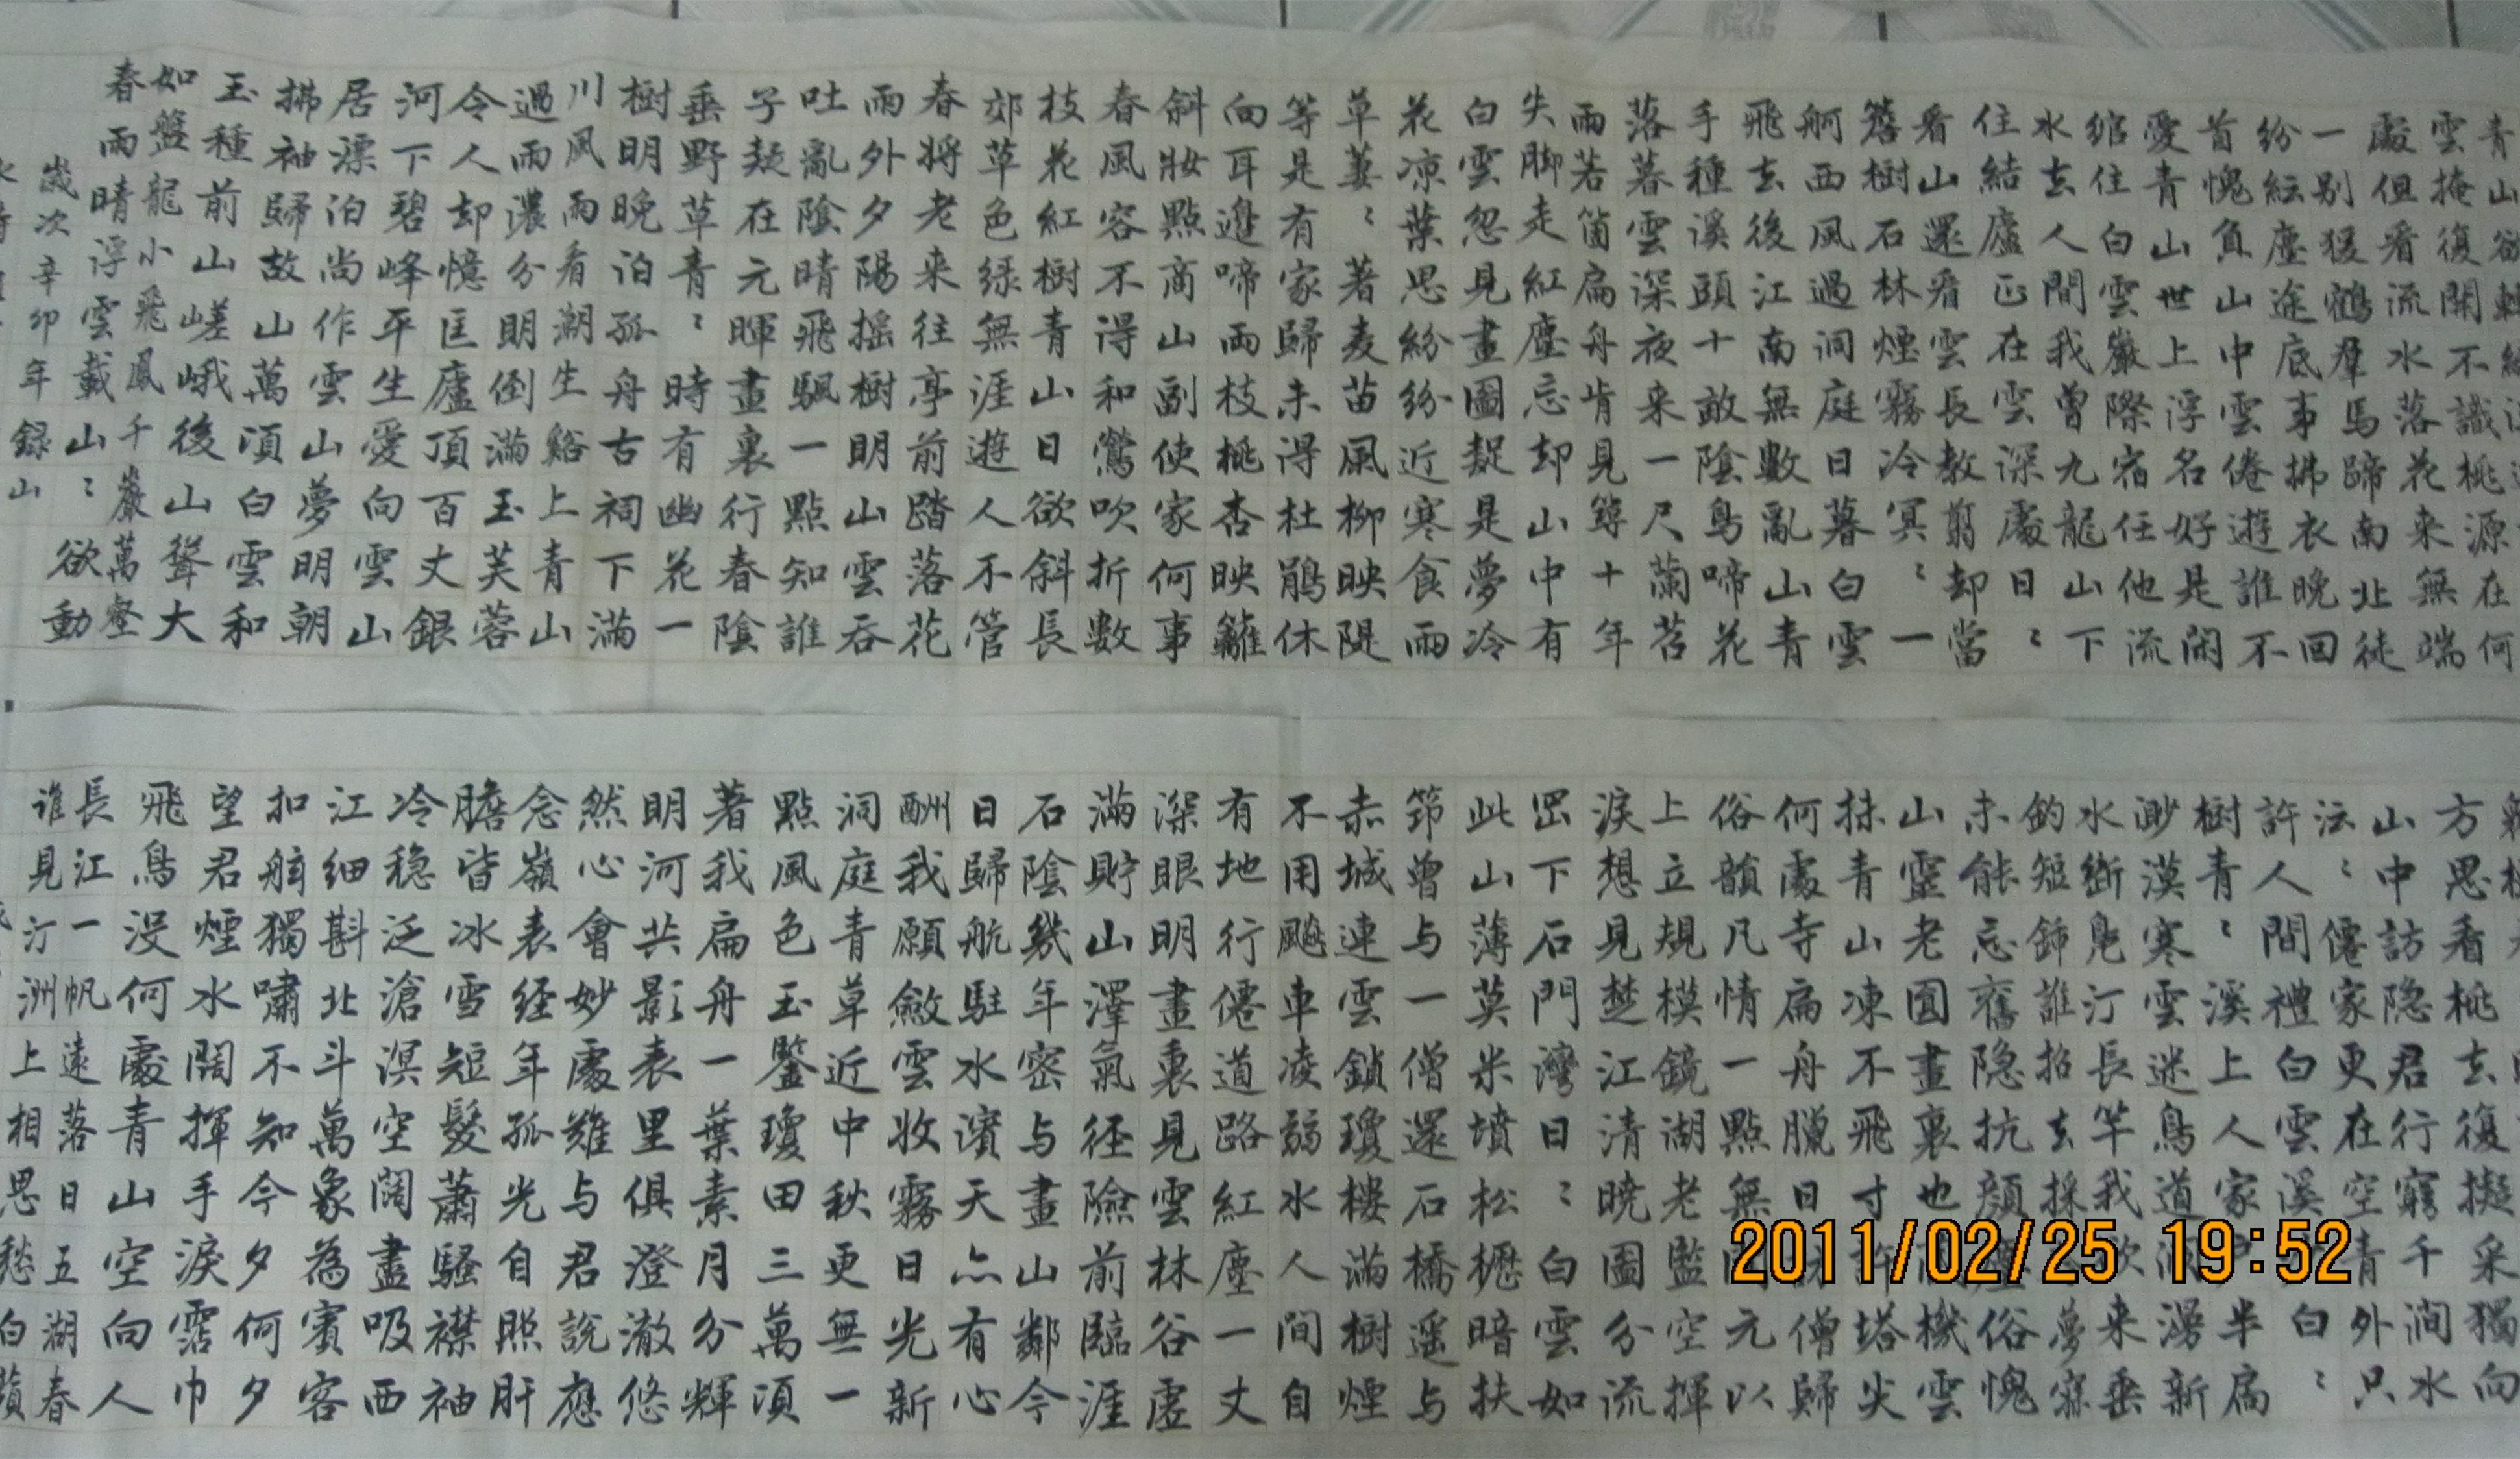 雲掩復開不識桃源在何
處但看流水落花来無端
一别猨鶴羣馬蹄南北徒
紛紜塵途底事拂衣晚回
首愧負山中雲倦遊誰不
愛青山世上浮名好是閑
綰住白雲巖際宿任他流
水去人間我曾九龍山下
住結廬正在雲深處日〻
看山還看雲長教翦却當
簷樹石林煙霧冷冥〻一
舸西風過洞庭日暮白雲
飛去後江南無數亂山青
手種溪頭十畝陰鳥啼花
落暮雲深夜来一尺蘭苕
雨若箇扁舟肯見尋十年
失脚走紅塵忘却山中有
白雲忽見畫圖疑是夢冷
花凉葉思紛紛近寒食雨
草萋〻著麦苗風柳映隄
等是有家歸未得杜鵑休
向耳邊啼雨枝桃杏映籬
斜妝點商山副使家何事
春風容不得和鶯吹折數
枝花紅樹青山日欲斜長
郊草色绿無涯遊人不管
春將老来往亭前踏落花
雨外夕陽摇樹明山雲吞
吐亂陰晴飛颿一點知誰
子疑在元暉畫裏行春陰
垂野草青〻時有幽花一
樹明晚泊孤舟古祠下滿
川風雨看潮生谿上青山
過雨濃分明倒滿玉芙蓉
令人却憶匡廬頂百丈銀
河下碧峰平生愛向雲山
居漂泊尚作雲山夢明朝
拂袖歸故山萬頃白雲和
玉種前山嵯峨後山聳大
如盤龍小飛鳳千巖萬壑
春雨晴浮雲載山〻欲動
歲次辛卯年録山
方思看桃去復擬采獨向
山中訪隐君行窮千澗水
法〻僊家更在空青外只
許人間禮白雲溪白〻
樹青〻溪上人家半扁
渺漠寒雲迷鳥道湧新
水斷鳧汀長竿我欲来垂
釣短誰招去採夢寐
未能忘舊隐抗顔塵俗愧
山靈老圓畫裏也機雲
抹青山凍不飛寸許塔尖
何處寺扁舟臘日僧歸
俗韻凡情一點無元以
上立規模鏡湖老監空揮
淚想見楚江清曉圖分流
罡下石門灣日〻白雲如
此山薄莫米墳松櫪暗扶
筇曾与一僧還石橋遥与
赤城連雲鎖瓊樓滿樹煙
不用飈車凌弱水人間自
有地行僊道路紅塵一丈
深眼明畫裏見雲林谷虚
滿貯山澤氣径險前臨涯
石陰幾年密与畫山鄰今
日歸航駐水濱天亦有心
酬我願斂雲收霧日光新
洞庭青草近中秋更無一
點風色玉鑒瓊田三萬頃
著我扁舟一葉素月分輝
明河共影表里俱澄澈悠
然心會妙處難与君說應
念嶺表经年孤光自照肝
膽皆冰雪短髮蕭騷襟袖
冷稳泛滄溟空闊盡吸西
江細斟北斗萬象為賓客
扣舷獨嘯不知今夕何夕
望君煙水闊揮手淚霑巾
飛鳥没何處青山空向人
長江一帆遠落日五湖春
誰見汀洲上相思愁白蘋
2011/02/25 19:52